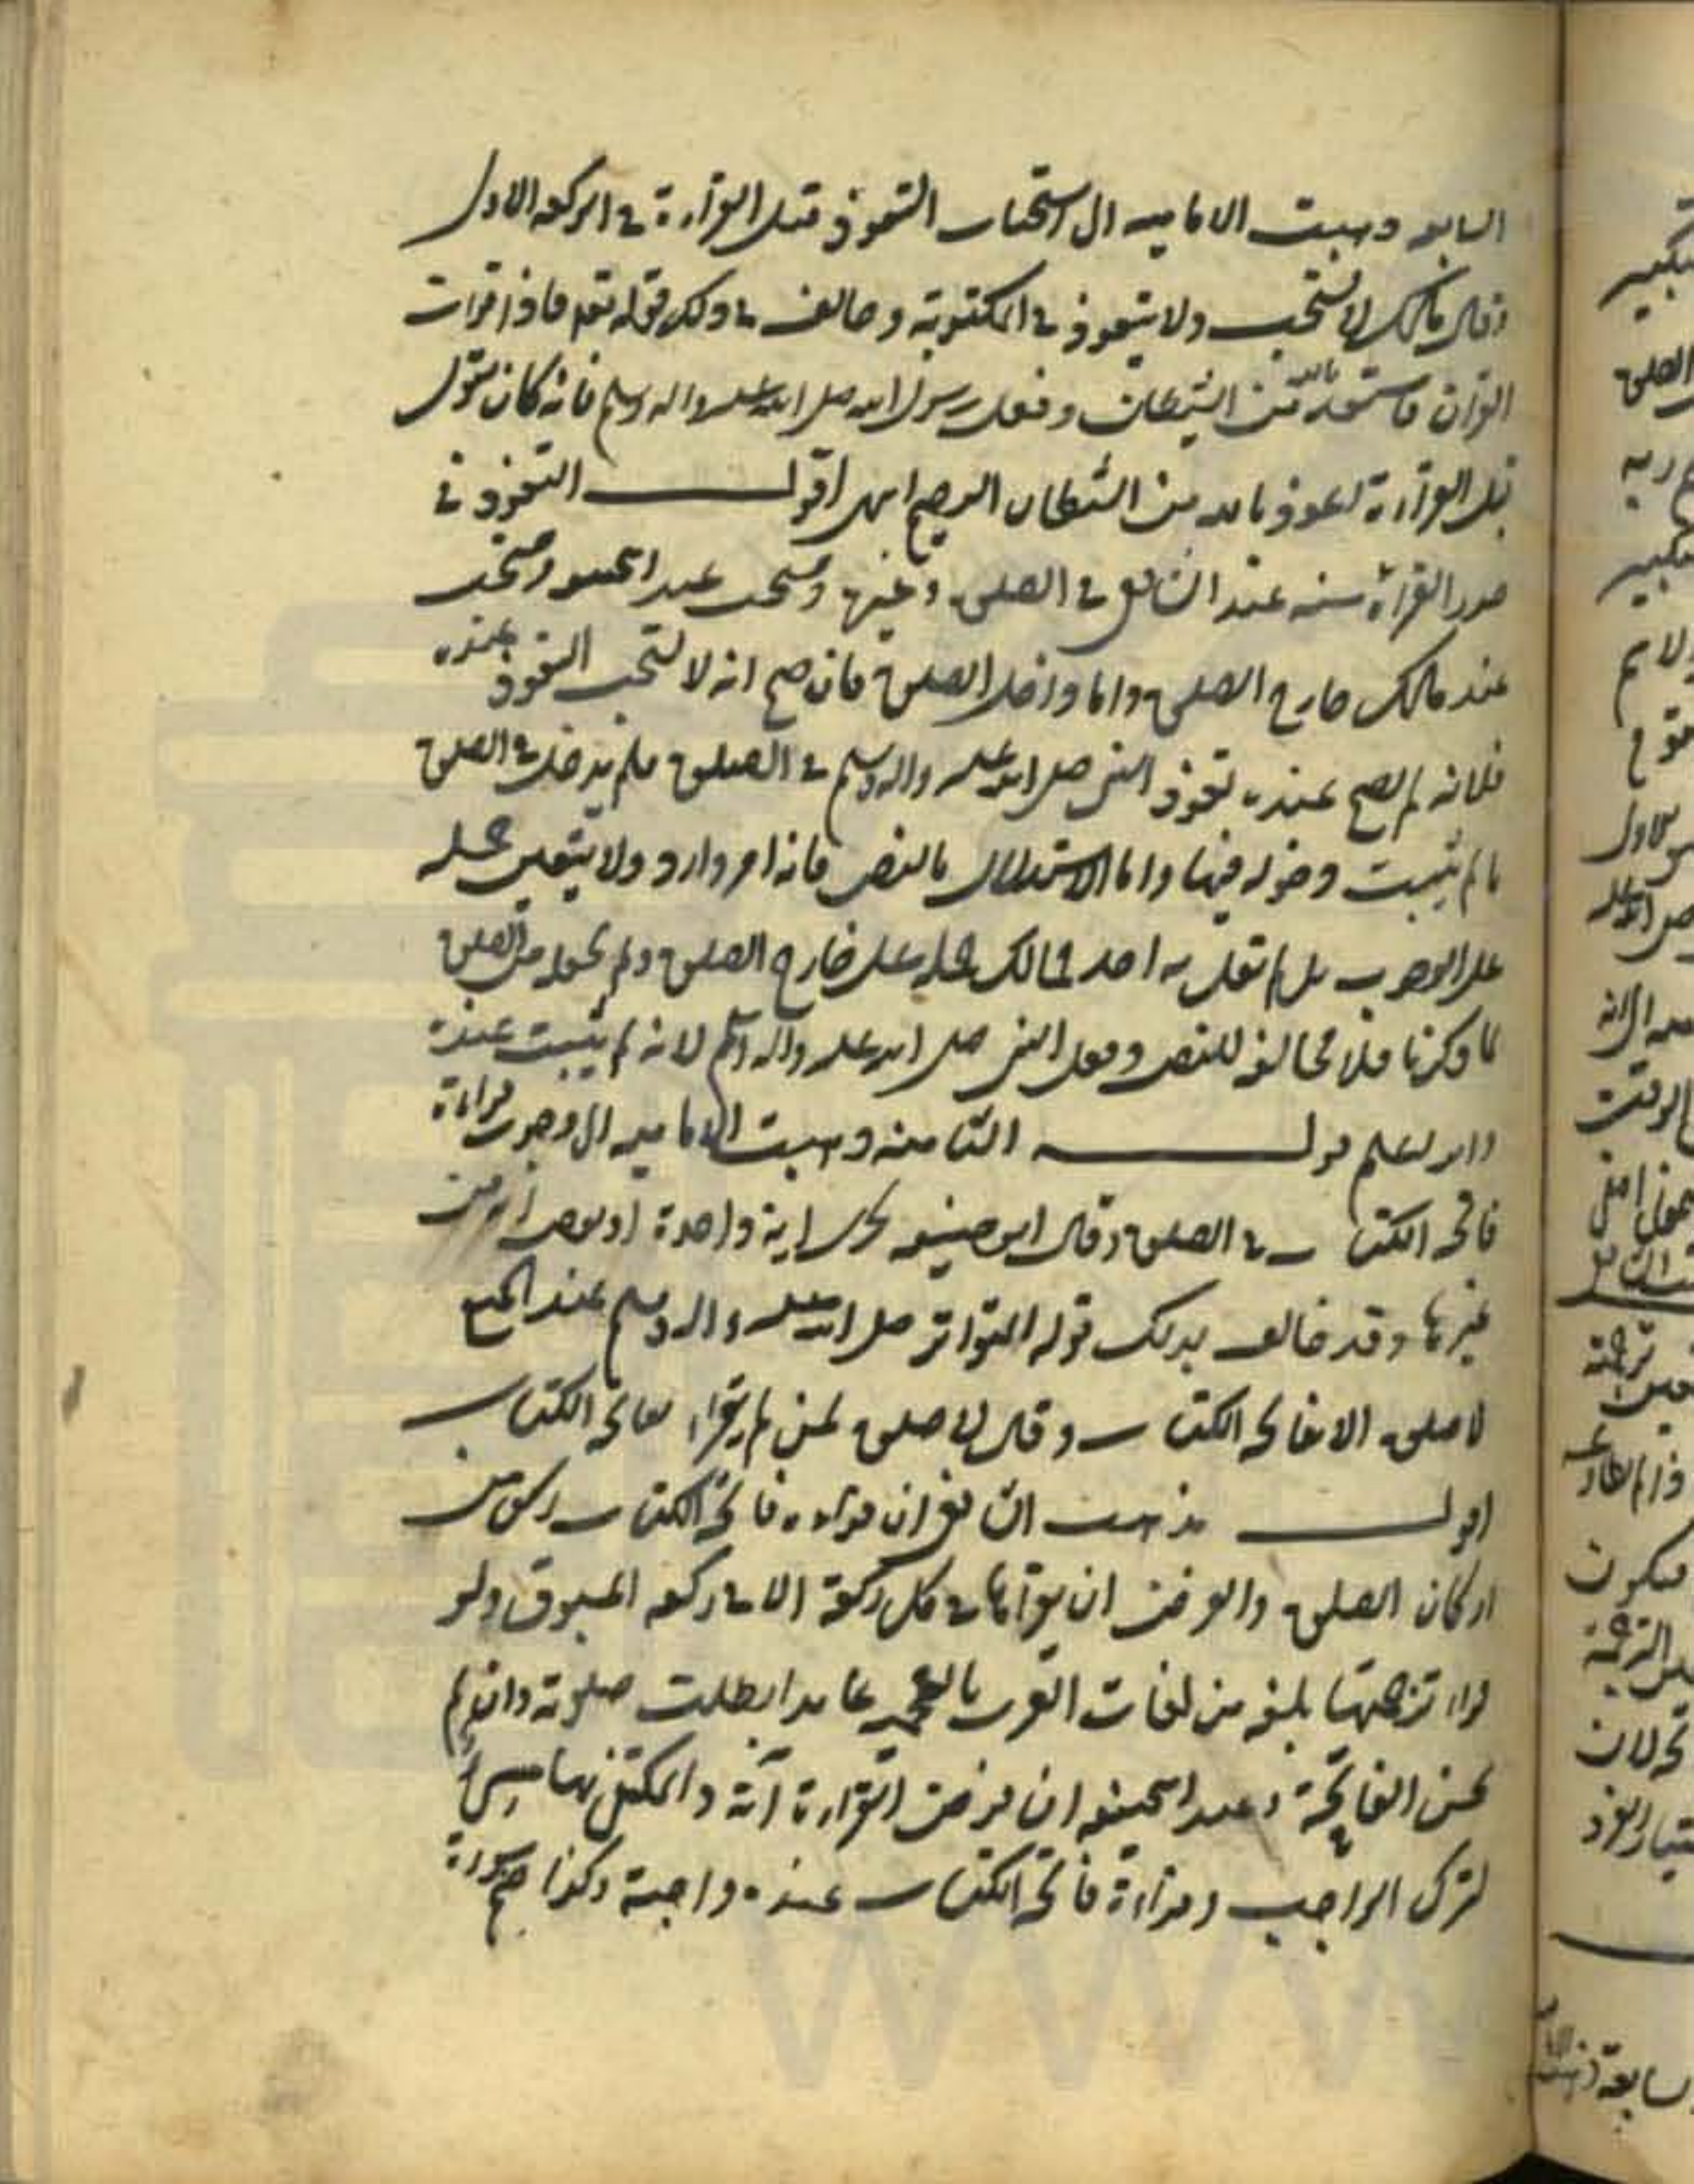 السابعه ذهبت الاماميه الى استحباب التعوذ قبل القراءة في الركعه الاولى
وقال مالك لا يستحب ولا يتعوذ في المكتوبة وخالف في ذلك قوله تعم فاذا قرات
القران فاستعذ بالله من الشيطان وفعل رسول الله صلى الله عليه واله وسلم فانه كان يقول
قبل القراءة اعوذ بالله من الشيطان الرجيم انتهى اقول التعوذ في
صدر القراءة سنه عند الشافعي في الصلوة وغيرها ومستحب عند ابيحنيفه ومستحب
عند مالك خارج الصلوة واما داخل الصلوة فان صح انه لا يستحب التعوذ عنده
فلانه لم يصح عنده تعوذ النبي صلى الله عليه واله وسلم في الصلوة فلم يدخل في الصلوة
ما لم يثبت دخوله فيها واما الاستدلال بالنص فانه امر وارد ولا يتعين حمله
على الوجوب بل لم يقل به احد فمالك حمله على خارج الصلوة ولم يحمله على الصلوة
لما ذكرنا فلا مخالفه للنص وفعل النبي صلى الله عليه واله وسلم لانه لم يثبت عنده
والله اعلم قوله الثامنه ذهبت الاماميه الى وجوب قراءة
فاتحه الكتاب في الصلوة وقال ابو حنيفه يجزى اية واحدة او بعض اية من
غيرها وقد خالف بذلك قوله المتواتر صلى الله عليه واله وسلم عند الجميع
لا صلوة الا بفاتحه الكتاب وقال لا صلوة لمن لم يقراء بفاتحه الكتاب
اقول مذهب الشافعي ان قراءه فاتحه الكتاب ركن من
اركان الصلوة والفرض ان يقرأها في كل ركعة الا في ركعه المسبوق ولو
قراء ترجمتها بلغه من لغات العرب بالعجميه عامدا بطلت صلوته وان لم
يحسن الفاتحة وعند ابيحنيفه ان فرض القراءة آية والمكتفى بها مسئ
لترك الواجب وقراءة فاتحه الكتاب عنده واجبة وكذا ضم سورة